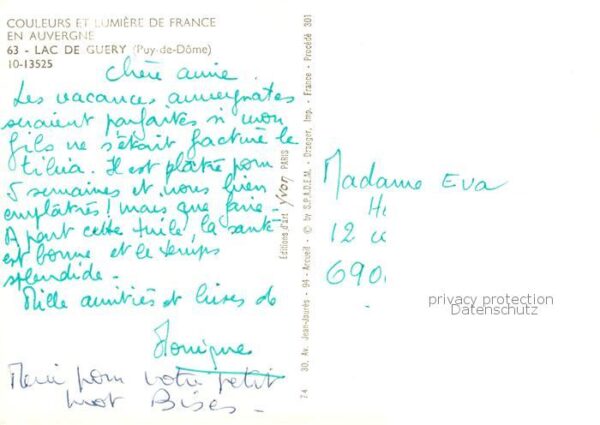 COULEURS ET LUMIÈRE DE FRANCE
EN AUVERGNE
63 - LAC DE GUERY (Puy-de-Dôme)
10-13525
Chère amie.
Les vacances auvergnates
seraient parfaites si mon
fils ne s'était facturé le
tibia. Il est plâtré pour
5 semaines et nous bien
emplâtrés! mais que faire.
A part cette tuile, la santé
est bonne et le temps
splendide.
Mille amitiés et bises de
Monique
Merci pour votre petit
mot Bises.
Editions d'art Yvon PARIS
74 30, Av. Jean-Jaurès - 94 - Arcueil - © by S.P.A.D.E.M. - Draeger, Imp. - France - Procédé 301
Madame Eva
H
12
690
privacy protection
Datenschutz